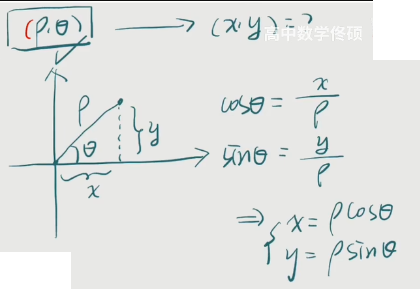 (ρ,θ) → (x,y)=?
高中数学佟硕
ρ
θ
y
x
cosθ = x/ρ
sinθ = y/ρ
⇒ { x = ρcosθ
y = ρsinθ